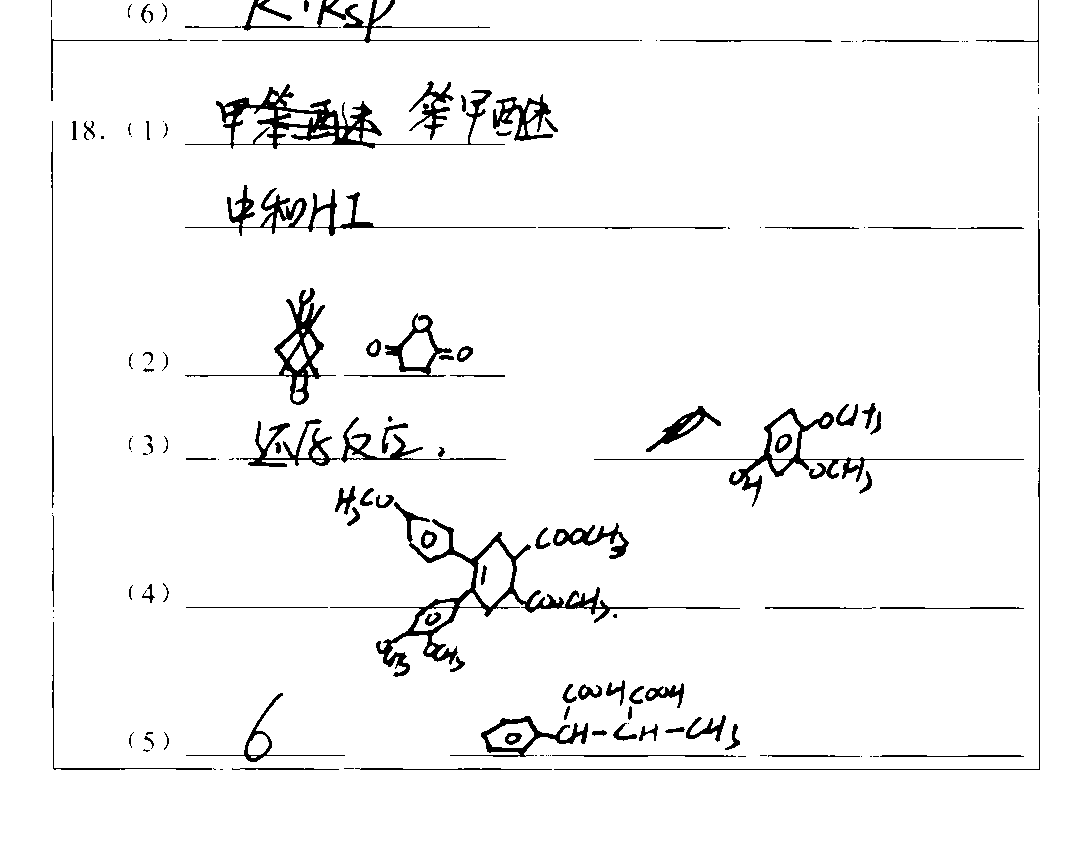 (6) K·Ksp
18. (1) 苯甲醚
中和HI
(2) O O O
(3) 还原反应. OCH3 OCH3 OH
(4) H3CO COOCH3 COOCH3. OCH3
(5) 6 COOH COOH CH-CH-CH3